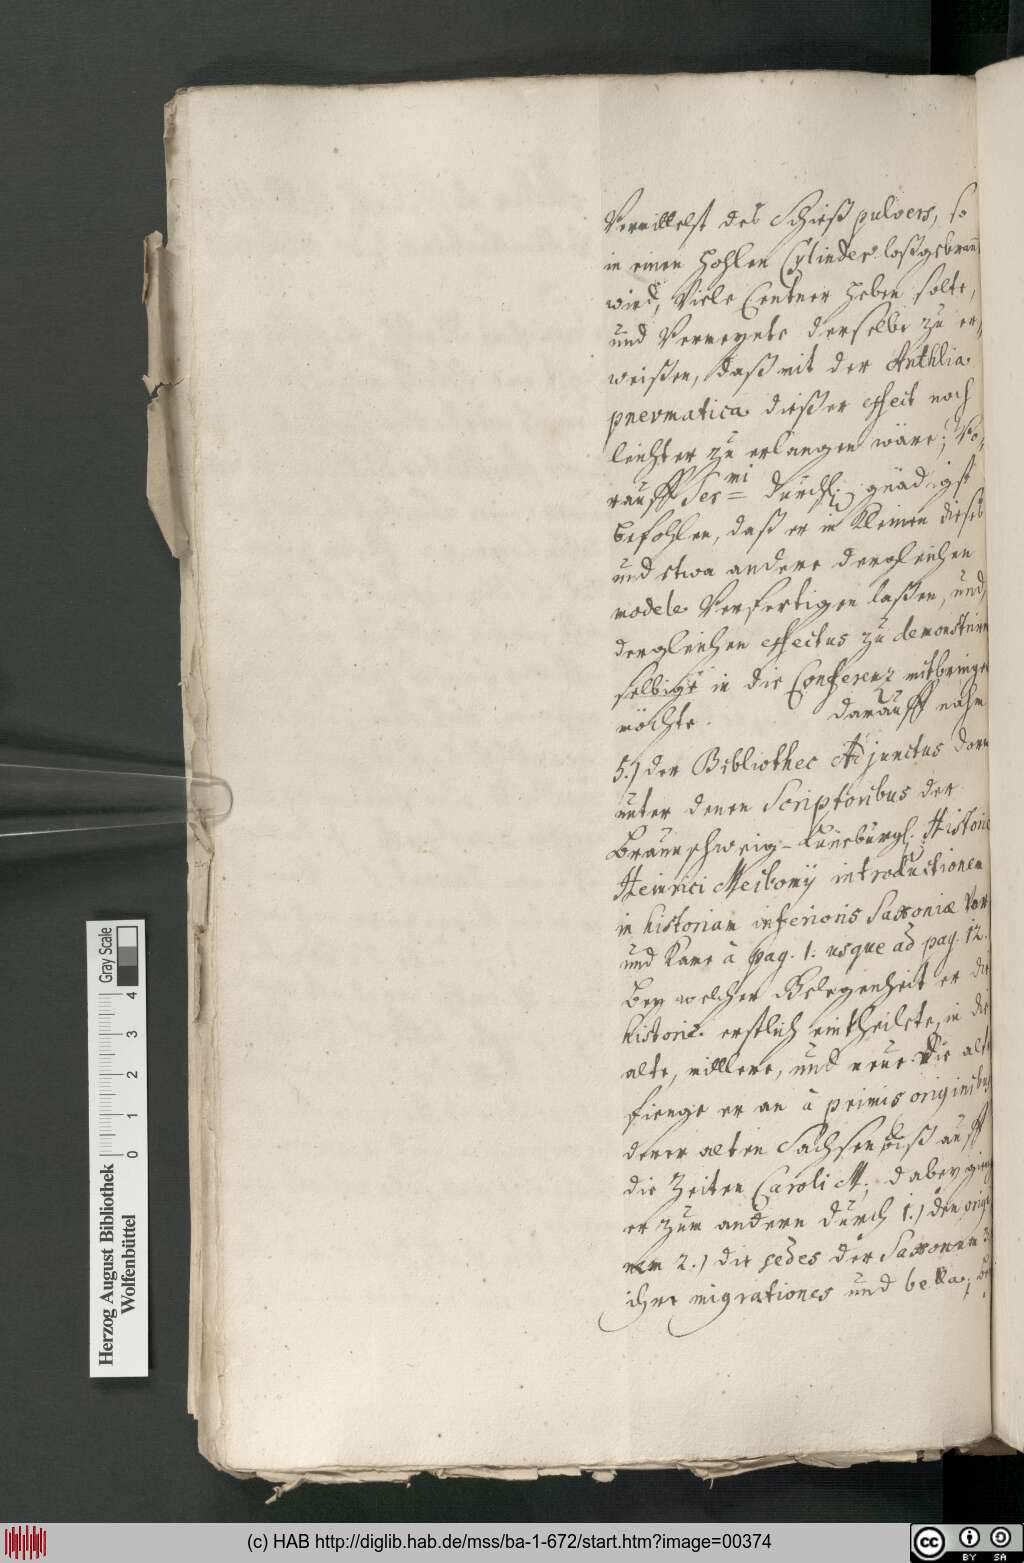 Vermittelst des Schießpulvers, so
in einen hohlen Cylinder loßgebrant
wird, Viele Centner heben solte,
und Vermeynte derselbe zu er-
weisen, daß mit der Anthlia
pnevmatica dießer effect noch
leichter zu erlangen wäre; Wo-
rauff Ser mi durchl: gnädigst
befohlen, daß er in Kleinen dieses
und etwa andere dergleichen
modele Verfertigen laßen, und
dergleichen effectus zu demonstriren
selbige in die Conferenz mitbringen
möchte. darauff nahm
5.) der Bibliothec Adjunctus
unter denen Scriptoribus der
Braunschweig-Lüneburgl. Historie
Heinrici Meibomij introductionem
in historiam inferioris Saxoniæ Vor
und Kame à pag. 1: usque ad pag. 12.
Bey welcher Gelegenheit er die
historie erstlich eintheilete, in die
alte, mittlere, und neue. die alte
fienge er an à primis originibus
derer alten Sachsen biß auff
die Zeiten Caroli M; dabey gieng
er zum andern durch 1.) den
2.) die sedes der Saxonum 3
ihre migrationes und bella;
Herzog August Bibliothek
Wolfenbüttel
0 1 2 3 4
Gray Scale
(c) HAB http://diglib.hab.de/mss/ba-1-672/start.htm?image=00374
cc BY SA